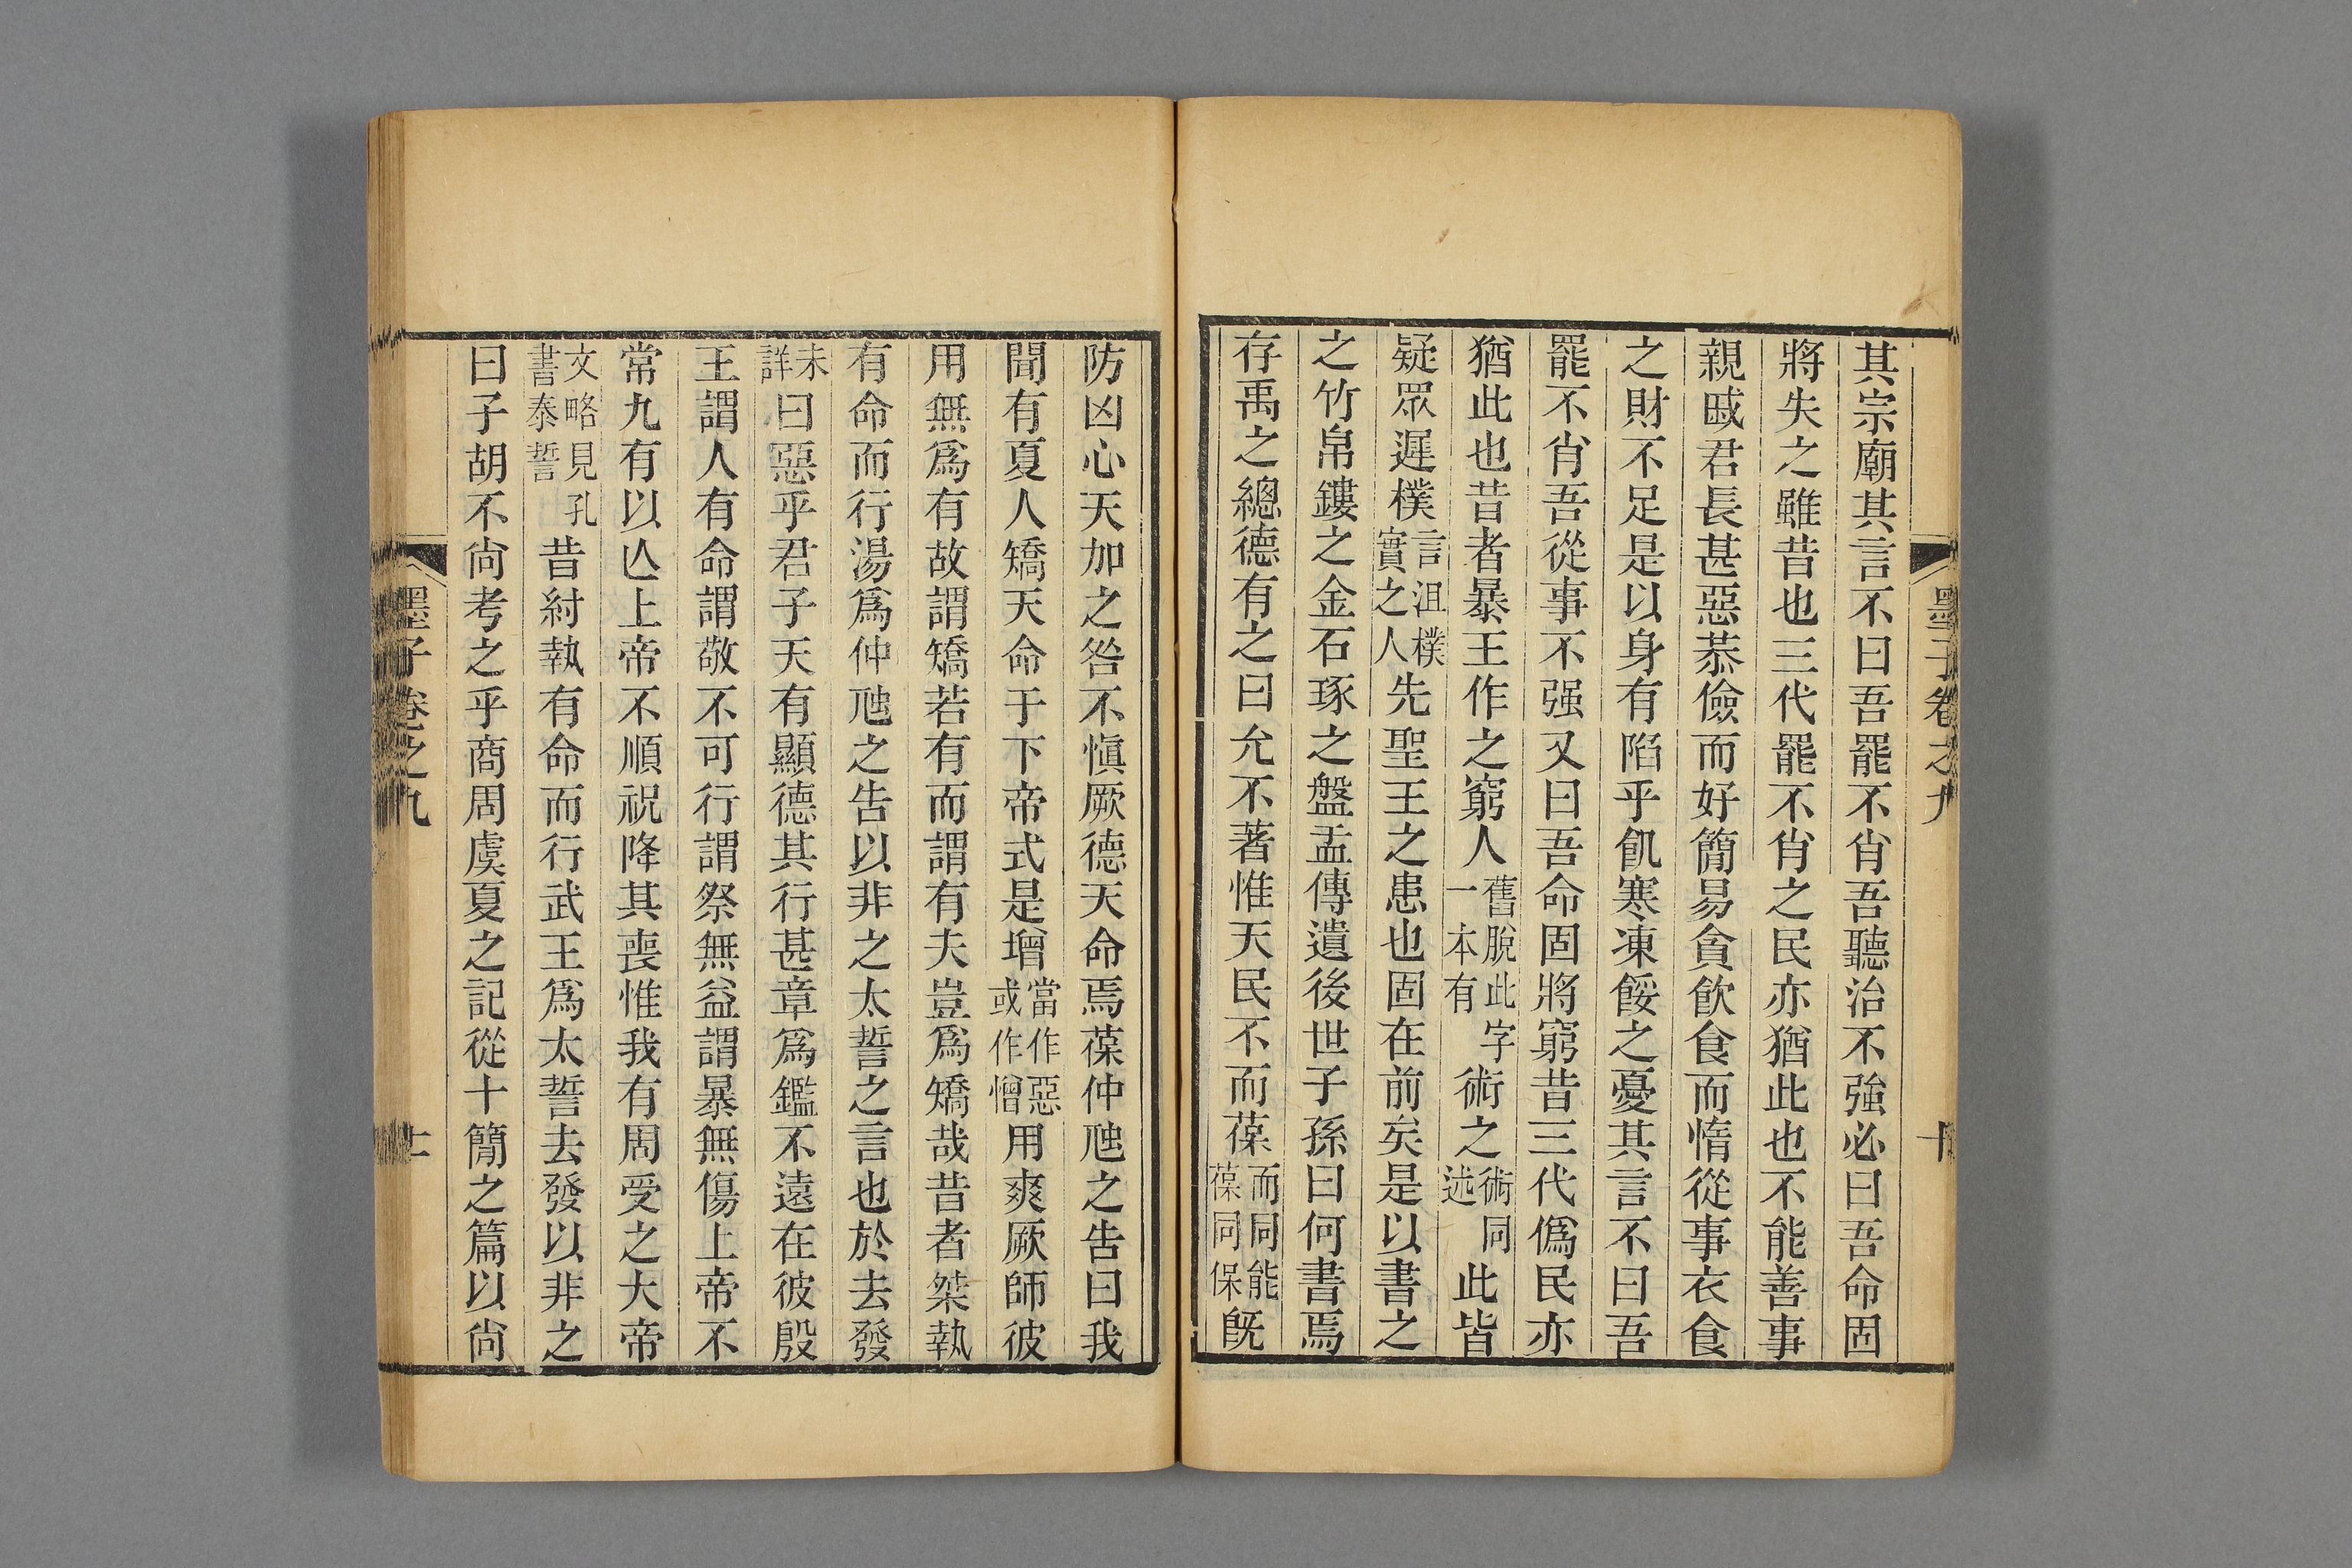 其宗廟其言不曰吾罷不肖吾聽治不強必曰吾命固
將失之雖昔也三代罷不肖之民亦猶此也不能善事
親戚君長甚惡恭儉而好簡易貪飲食而惰從事衣食
之財不足是以身有陷乎飢寒凍餒之憂其言不曰吾
罷不肖吾從事不强又曰吾命固將窮昔三代僞民亦
猶此也昔者暴王作之窮人舊脫此字一本有術之術同述此皆
疑眾遲樸言沮樸實之人先聖王之患也固在前矣是以書之
之竹帛鏤之金石琢之盤盂傳遺後世子孫曰何書焉
存禹之總德有之曰允不著惟天民不而葆而同能葆同保旣
墨子卷之九
十
防凶心天加之咎不愼厥德天命焉葆仲虺之告曰我
聞有夏人矯天命于下帝式是增當作惡或作憎用爽厥師彼
用無爲有故謂矯若有而謂有夫豈爲矯哉昔者桀執
有命而行湯爲仲虺之告以非之太誓之言也於去發
未詳曰惡乎君子天有顯德其行甚章爲鑑不遠在彼殷
王謂人有命謂敬不可行謂祭無益謂暴無傷上帝不
常九有以亾上帝不順祝降其喪惟我有周受之大帝
文略見孔書泰誓昔紂執有命而行武王爲太誓去發以非之
曰子胡不尙考之乎商周虞夏之記從十簡之篇以尙
墨子卷之九
十一